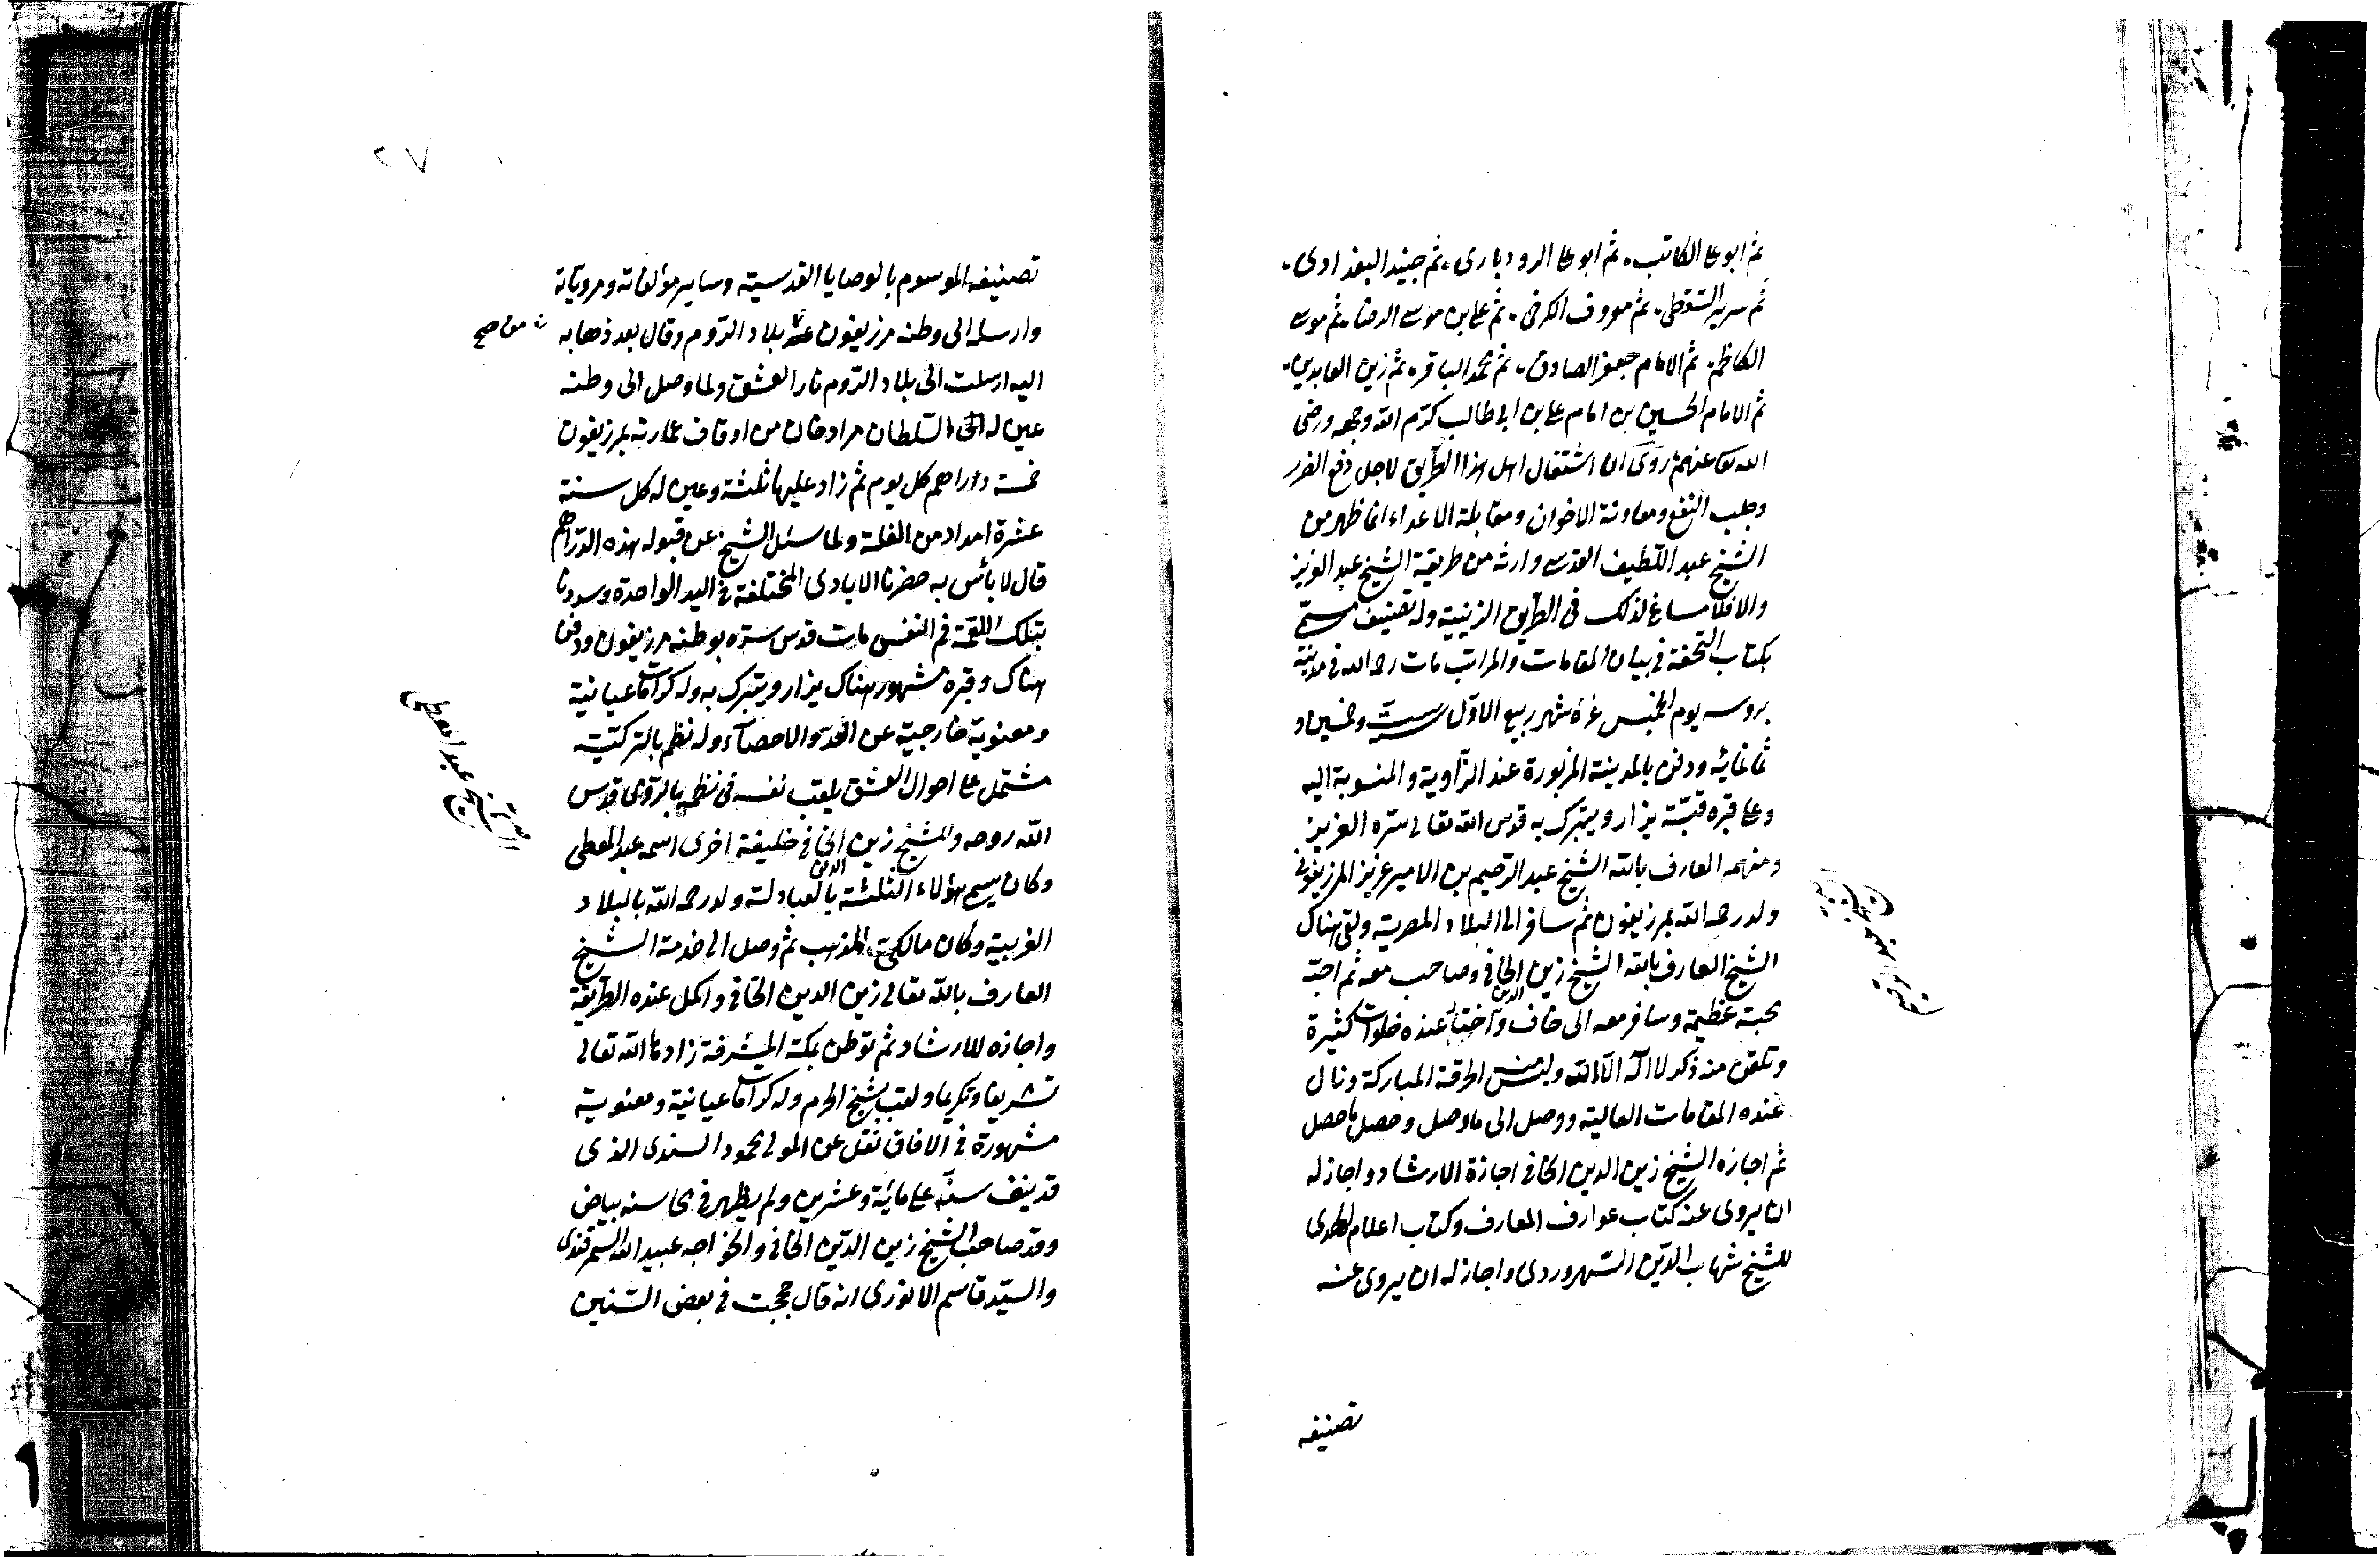 ثم ابو على الكاتب، ثم ابو على الرودبارى، ثم جنيد البغدادى،
ثم سرير السقطى، ثم معروف الكرخى، ثم على بن موسى الرضا، ثم موسى
الكاظم، ثم الامام جعفر الصادق، ثم محمد الباقر، ثم زين العابدين،
ثم الامام الحسين بن امام على بن ابى طالب كرّم الله وجهه ورضى
الله تعا عنهم روى ان اشتغال اهل هذا الطريق لاجل دفع الضرر
وجلب النفع ومعاونة الاخوان ومقابلة الاعداء انما ظهر من
الشيخ عبد اللطيف القدسى وارثه من طريقة الشيخ عبد العزيز
والا فلا مساغ لذلك فى الطريق الزينية وله تصنيف مسمّى
بكتاب التحفة فى بيان المقامات والمراتب مات رحمه الله فى مدينة
بروسه يوم الخميس غرة شهر ربيع الاول لسنة ست وخمسين و
ثمانمائه ودفن بالمدينة المزبورة عند الزاوية والمنسوبة اليه
وعلى قبره قبّة يزار ويتبرك به قدس الله تعالى سرّه العزيز
ومنهم العارف بالله الشيخ عبد الرّحيم بن الامير عزيز المرزيفونى
ولد رحمه الله بمرزيفون ثم سافر الى البلاد المصرية ولقى هناك
الشيخ العارف بالله الشيخ زين الدين الخافى وصاحب معه ثم احبّه
محبة عظيمة وسافر معه الى خاف واختار عنده خلوات كثيرة
وتلقن منه ذكر لا اله الا الله ولبس منه الخرقة المباركة ونال
عنده المقامات العالية ووصل الى ما وصل وحصل ما حصل
ثم اجازه الشيخ زين الدين الخافى اجازة الارشاد واجاز له
ان يروى عنه كتاب عوارف المعارف وكتاب اعلام الهدى
للشيخ شهاب الدّين السّهروردى واجاز له ان يروى عنه
تصنيفه
الشيخ عبد الرحيم
٢٧
تصنيفه الموسوم بالوصايا القدسية وساير مؤلفاته ومروياته
وارسله الى وطنه مرزيفون بلاد الرّوم وقال بعد ذهابه
من صح
اليه ارسلت الى بلاد الرّوم نار العشق ولما وصل الى وطنه
عين له السّلطان مراد خان من اوقاف عمارته بمرزيفون
خمسة دراهم كل يوم ثم زاد عليها ثلثة وعين له كل سنة
عشرة امداد من الغلة ولما سئل الشيخ عن قبوله هذه الدّراهم
قال لا بأس به حضرنا الايادى المختلفة فى اليد الواحدة وسددنا
بتلك اللقمة فم النفس مات قدس سرّه بوطنه مرزيفون ودفن
هناك وقبره مشهور هناك يزار ويتبرك به وله كرامات عيانية
ومعنوية خارجية عن الحد والاحصاء وله نظم بالتركيّة
مشتمل على احوال العشق يلقب نفسه فى نظمه بالرّومى قدس
الله روحه وللشيخ زين الدين الخافى خليفة اخرى اسمه عبد المعطى
وكان يسمى هؤلاء الثلثة بالعبادلة ولد رحمه الله بالبلاد
الغربية وكان مالكىّ المذهب ثم وصل الى خدمة الشيخ
العارف بالله تعالى زين الدين الخافى واكمل عنده الطريقة
واجازه للارشاد ثم توطن بمكة المشرفة زادها الله تعالى
تشريفا وتكريما ولقب بشيخ الحرم وله كرامات عيانية ومعنوية
مشهورة فى الافاق نقل عن المولى محمود السندى الذى
قد ينف سنّه على مائة وعشرين ولم يظهر فى محاسنه بياض
وقد صاحب الشيخ زين الدّين الخافى والخواجه عبيد الله السمرقندى
والسيّد قاسم الانورى انه قال حججت فى بعض السّنين
الشيخ عبد المعطى